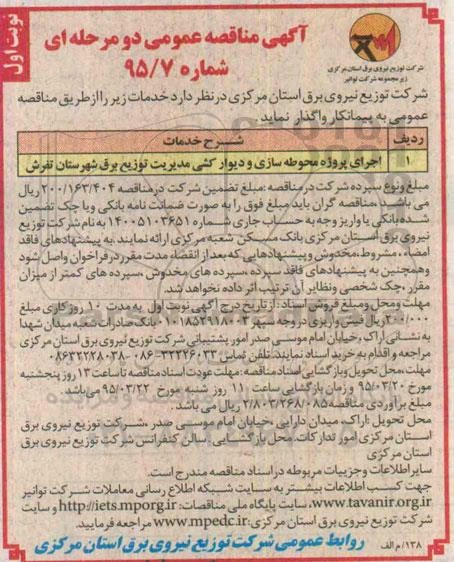 نوبت اول
آگهی مناقصه عمومی دو مرحله ای
شماره ۹۵/۷
شرکت توزیع نیروی برق استان مرکزی
زیر مجموعه شرکت توانیر
شرکت توزیع نیروی برق استان مرکزی در نظر دارد خدمات زیر را از طریق مناقصه
عمومی به پیمانکار واگذار نماید.
ردیف شرح خدمات
۱ اجرای پروژه محوطه سازی و دیوار کشی مدیریت توزیع برق شهرستان تفرش
مبلغ و نوع سپرده شرکت در مناقصه: مبلغ تضمین شرکت در مناقصه ۲۰۰/۱۶۳/۴۰۴ ریال
می باشد. مناقصه گران باید مبلغ فوق را به صورت ضمانت نامه بانکی و یا چک تضمین
شده بانکی یا واریز وجه به حساب جاری شماره ۱۴۰۰۵۱۰۳۶۵۱ به نام شرکت توزیع
نیروی برق استان مرکزی بانک مسکن شعبه مرکزی ارائه نمایند. به پیشنهادهای فاقد
امضاء، مشروط، مخدوش و پیشنهادهایی که بعد از انقضاء مدت مقرر در فراخوان واصل شود
و همچنین به پیشنهادهای فاقد سپرده، سپرده های مخدوش، سپرده های کمتر از میزان
مقرر، چک شخصی و نظایر آن ترتیب اثر داده نخواهد شد.
مهلت و محل و مبلغ فروش اسناد: از تاریخ درج آگهی نوبت اول به مدت ۱۰ روز کاری مبلغ
۲۰۰/۰۰۰ ریال فیش واریزی در وجه سپهر ۰۱۰۱۸۵۲۹۱۸۰۰۳ بانک صادرات شعبه میدان شهدا
به نشانی اراک، خیابان امام موسی صدر امور پشتیبانی شرکت توزیع نیروی برق استان مرکزی
مراجعه و اقدام به خرید اسناد نمایند. تلفن تماس ۳۳۲۲۶۰۳۳-۰۸۶ ۰۸۶۳۲۲۲۸۰۳۸
مهلت، محل تحویل و بازگشایی اسناد مناقصه: مهلت عودت اسناد مناقصه تا ساعت ۱۳ روز پنجشنبه
مورخ ۹۵/۰۳/۲۰ و زمان بازگشایی ساعت ۱۱ روز شنبه مورخ ۹۵/۰۳/۲۲ می باشد.
مبلغ برآوردی مناقصه ۲/۸۰۳/۲۶۸/۰۸۵ ریال می باشد.
محل تحویل: اراک، میدان دارایی، خیابان امام موسی صدر، شرکت توزیع نیروی برق
استان مرکزی امور تدارکات. محل بازگشایی: سالن کنفرانس شرکت توزیع نیروی برق
استان مرکزی
سایر اطلاعات و جزییات مربوطه در اسناد مناقصه مندرج است.
جهت کسب اطلاعات بیشتر به سایت شبکه اطلاع رسانی معاملات شرکت توانیر
www.tavanir.org.ir، سایت پایگاه ملی مناقصات: http://iets.mporg.ir و سایت
شرکت توزیع نیروی برق استان مرکزی: www.mpedc.ir مراجعه فرمایید.
روابط عمومی شرکت توزیع نیروی برق استان مرکزی
۱۳۸/م الف